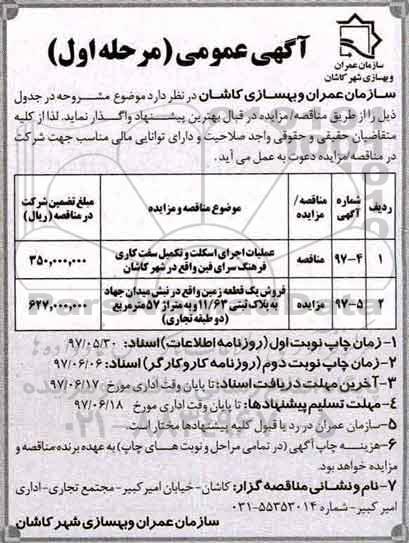 آگهی عمومی (مرحله اول)
سازمان عمران
و بهسازی شهر کاشان
سازمان عمران و بهسازی کاشان در نظر دارد موضوع مشروحه در جدول
ذیل را از طریق مناقصه/مزایده در قبال بهترین پیشنهاد واگذار نماید. لذا از کلیه
متقاضیان حقیقی و حقوقی واجد صلاحیت و دارای توانایی مالی مناسب جهت شرکت
در مناقصه/مزایده دعوت به عمل می آید.
ردیف | شماره آگهی | مناقصه/ مزایده | موضوع مناقصه و مزایده | مبلغ تضمین شرکت در مناقصه (ریال)
۱ | ۹۷-۴ | مناقصه | عملیات اجرای اسکلت و تکمیل سفت کاری فرهنگ سرای فین واقع در شهر کاشان | ۳۵۰,۰۰۰,۰۰۰
۲ | ۹۷-۵ | مزایده | فروش یک قطعه زمین واقع در نبش میدان جهاد به پلاک ثبتی ۱۱/۶۳ و به متراژ ۵۷ مترمربع (دو طبقه تجاری) | ۶۲۷,۰۰۰,۰۰۰
۱-زمان چاپ نوبت اول (روزنامه اطلاعات) اسناد: ۹۷/۰۵/۳۰
۲-زمان چاپ نوبت دوم (روزنامه کار و کارگر) اسناد: ۹۷/۰۶/۰۶
۳-آخرین مهلت دریافت اسناد: تا پایان وقت اداری مورخ ۹۷/۰۶/۱۷
۴-مهلت تسلیم پیشنهادها: تا پایان وقت اداری مورخ ۹۷/۰۶/۱۸
۵-سازمان عمران در رد یا قبول کلیه پیشنهادها مختار است.
۶-هزینه چاپ آگهی (در تمامی مراحل و نوبت های چاپ) به عهده برنده مناقصه و
مزایده خواهد بود.
۷-نام و نشانی مناقصه گزار: کاشان-خیابان امیرکبیر-مجتمع تجاری-اداری
امیرکبیر-شماره ۵۵۳۵۳۰۱۴-۰۳۱
سازمان عمران و بهسازی شهر کاشان